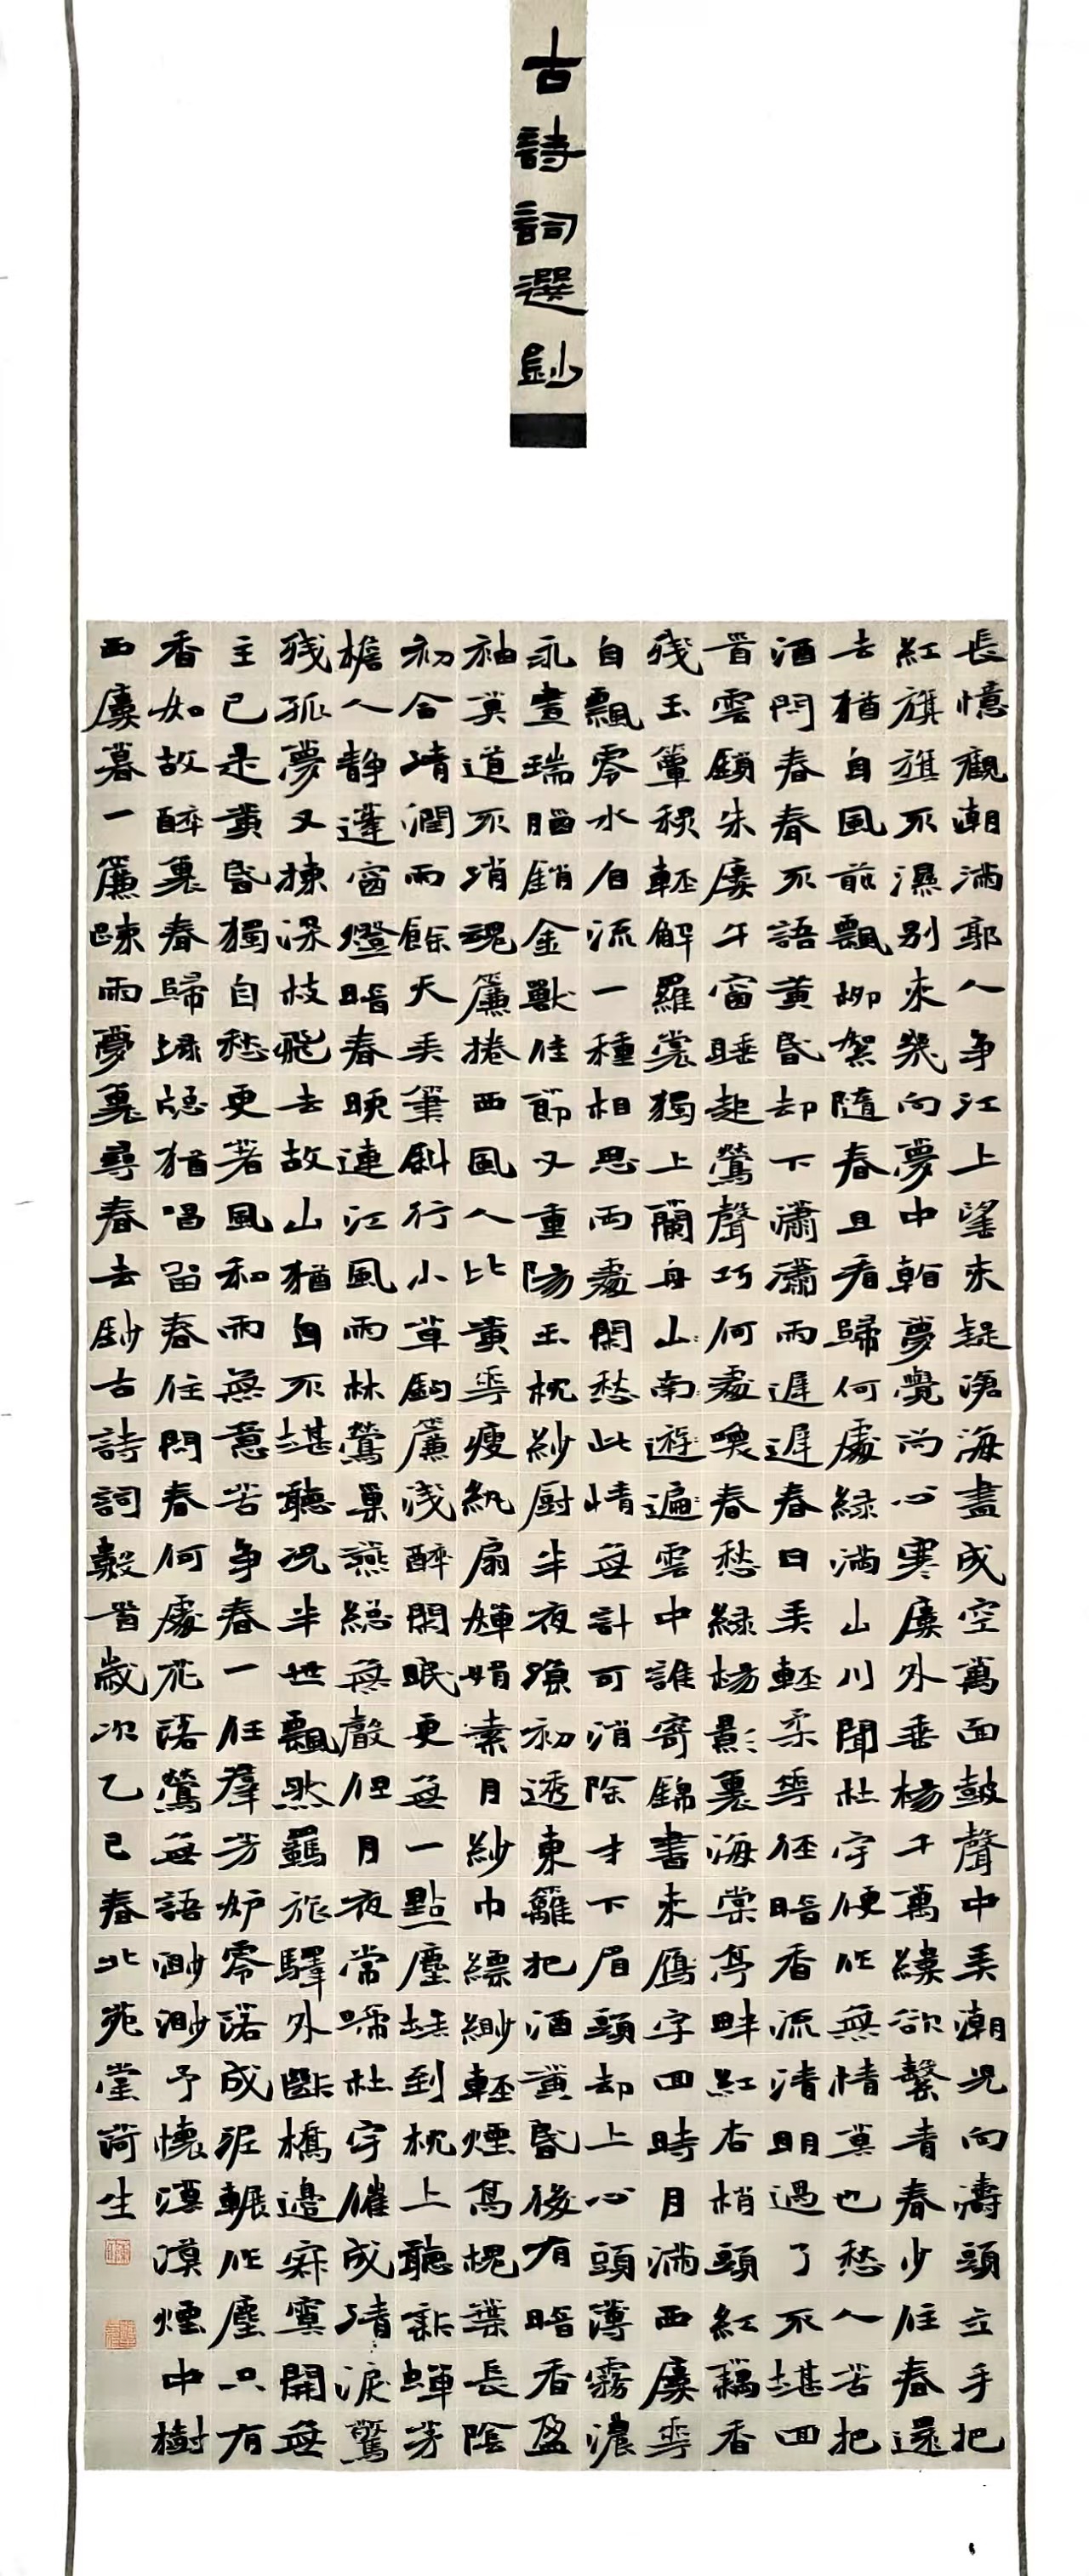 古詩詞選鈔
長憶觀潮滿郭人爭江上望來疑滄海盡成空萬面鼓聲中弄潮兒向濤頭立手把
紅旗旗不濕別來幾向夢中看夢覺尚心寒樓外垂楊千萬縷欲繫青春少住春還
去猶自風前飄柳絮隨春且看歸何處綠滿山川聞杜宇便作無情莫也愁人苦把
酒問春春不語黃昏却下瀟瀟雨遲遲春日弄輕柔花徑暗香流清明過了不堪回
首雲鎖朱樓午窗睡起鶯聲巧何處喚春愁綠楊影裏海棠亭畔紅杏梢頭紅藕香
殘玉簟秋輕解羅裳獨上蘭舟山南遊遍雲中誰寄錦書來鴈字回時月滿西樓花
自飄零水自流一種相思兩處閑愁此情無計可消除才下眉頭却上心頭薄霧濃
永晝瑞腦銷金獸佳節又重陽玉枕紗厨半夜涼初透東籬把酒黃昏後有暗香盈
袖莫道不消魂簾捲西風人比黃花瘦紈扇嬋娟素月紗巾縹緲輕煙高槐葉長陰
初合清潤雨餘天弄筆斜行小草鈎簾淺醉閑眠更無一點塵埃到枕上聽新蟬茅
檐人靜蓬窗燈暗春晚連江風雨林鶯巢燕總無聲但月夜常啼杜宇催成清淚驚
殘孤夢又揀深枝飛去故山猶自不堪聽況半世飄然羈旅驛外斷橋邊寂寞開無
主已是黃昏獨自愁更著風和雨無意苦爭春一任羣芳妒零落成泥輾作塵只有
香如故醉裏春歸綠窗猶唱留春住問春何處花落鶯無語渺渺予懷漠漠煙中樹
西樓暮一簾疎雨夢裏尋春去鈔古詩詞數首歲次乙巳春北苑堂荷生